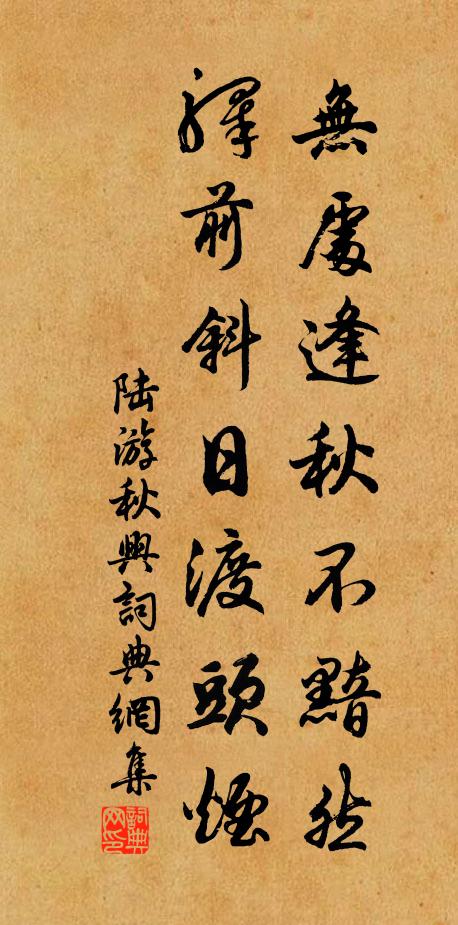 無處逢秋不黯然
驛前斜日渡頭煙
陆游秋興詞典網集
詞典网印